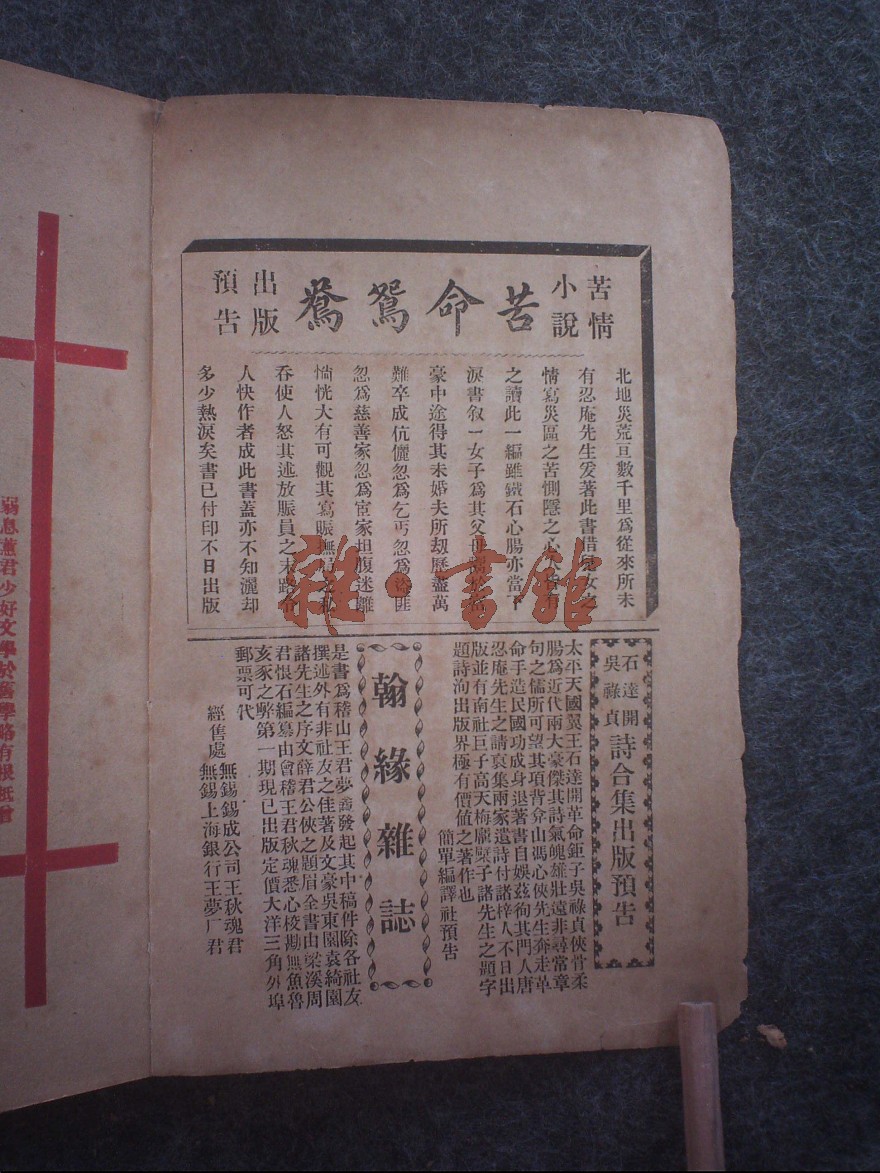 苦情
小說
苦命鴛鴦
出版
預告
北地災荒亘數千里爲從來所未
有忍庵先生爰著此書借兒女之
情寫災區之苦惻隱之心人皆有
之讀此一編雖鐵石心腸亦當下
淚書叙一女子爲其父母
豪中途得其未婚夫所刼歷盡萬
難卒成伉儷忽爲乞丐忽爲盜匪
忽爲慈善家忽爲宦家坦腹迷離
惝恍大有可觀其寫賑撫
吞使人怒其述放賑員之末路令
人快作者成此書蓋亦不知灑却
多少熱淚矣書已付印不日出版
石達開
吳祿貞
詩合集出版預告
太平天國翼王石達開革命鉅子吳祿貞俠骨柔
腸爲近代兩大豪傑其詩氣魄雄壯遠非尋常章
句之儒所可望其項背弇山馮心俠先生奔走革
命手造民國功成身退著書自娛茲徇其門人唐
忍庵先生之請裒集兩家遺詩付諸梓人不日出
版並有南社巨子高天梅龐檗子諸先生之題字
題詩洵出版界極有價値之著作也
簡單編譯社預告
翰緣雜誌
是書爲稽山王君夢盦發起其中稿件除各社友
撰述外有非社友之佳著及文豪吳東園袁綺園
諸先生之序文薛君公俠之題眉全書由梁溪周
君恨石編纂由會稽王君秋魂悉心校勘無魚魯
亥豕之弊第一期現已出版定價大洋三角外埠
郵票可代
經售處
無錫錫成公司王秋魂君
無錫上海銀行王夢厂君
弱息蕙君少好文學於舊學略有根柢曾
雜·書館